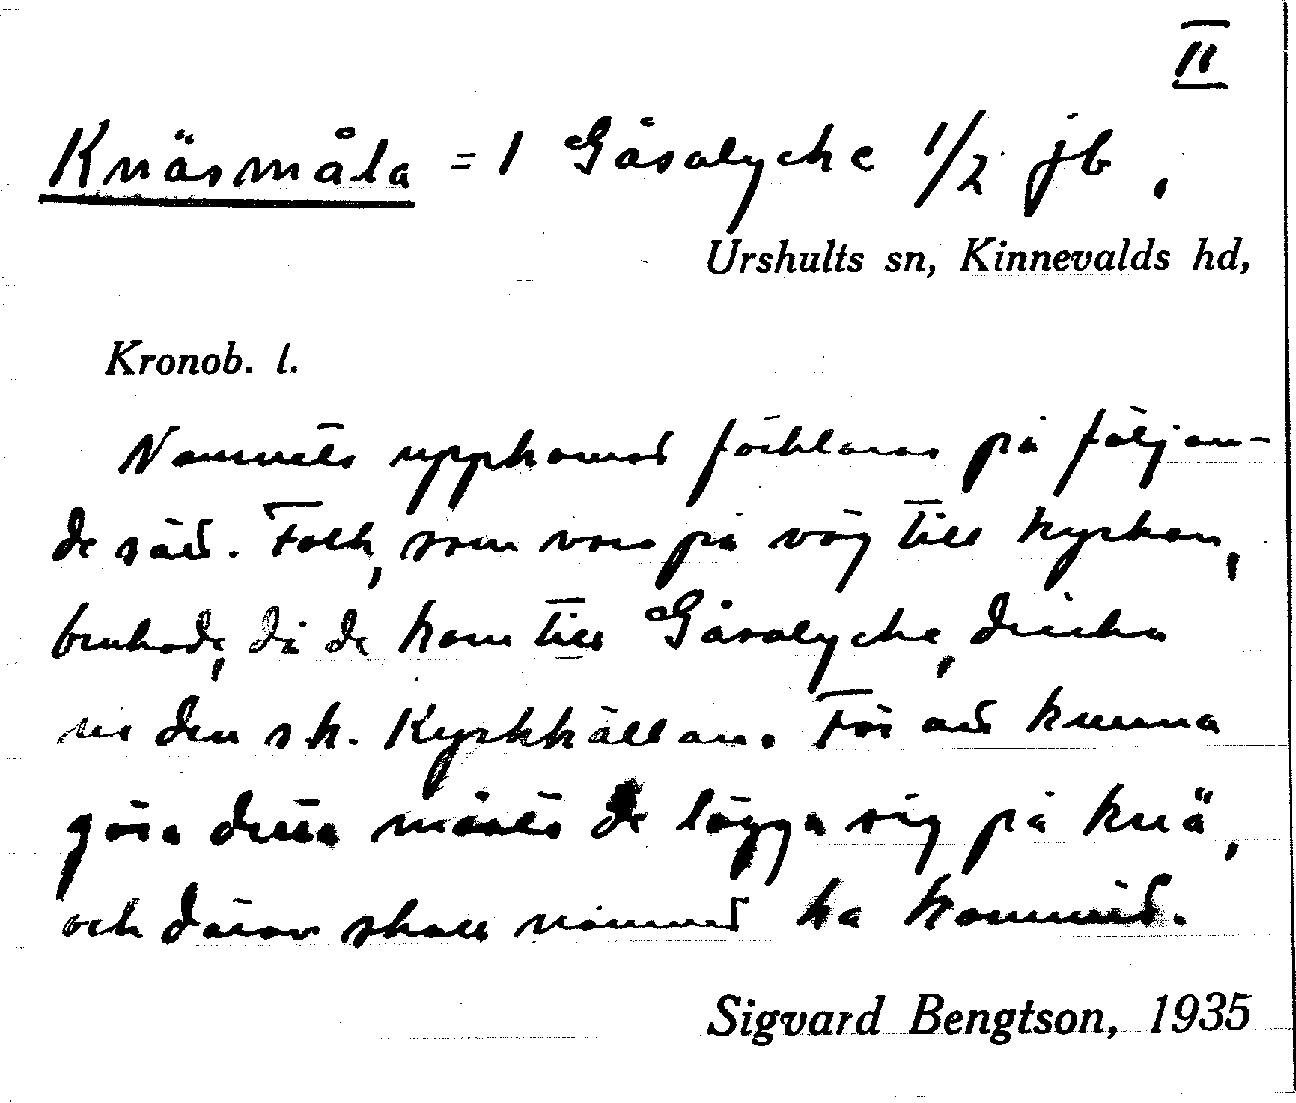 II
Knäsmåla = 1 Gåsalycke 1/2 jb.
Urshults sn, Kinnevalds hd,
Kronob. l.
Namnets uppkomst förklaras på följan-
de sätt. Folk, som voro på väg till kyrkan,
brukade, då de kom till Gåsalycke, dricka
ur den s k. Kyrkkällan. För att kunna
göra detta måste de lägga sig på knä,
och därav skall namnet ha kommit.
Sigvard Bengtson, 1935